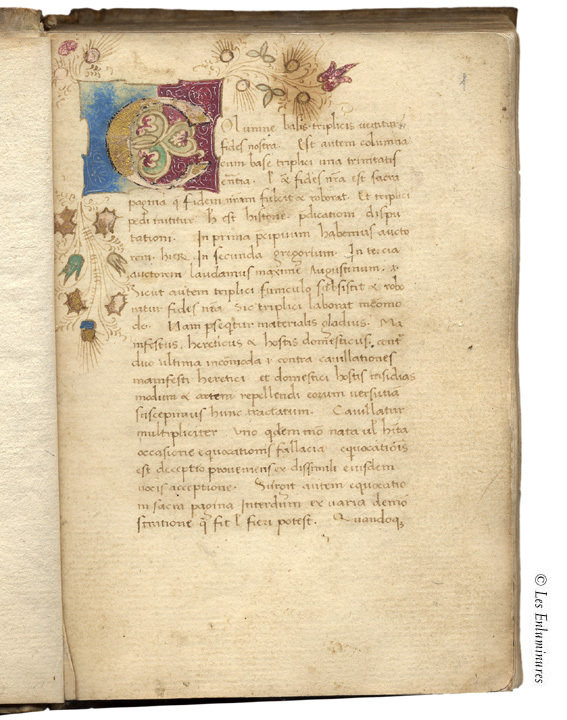 Olumne basis triplicis vertitur
fides nostra. Est autem columna
cum base triplici una trinitatis
fides nra est sacra
pagina q fidem nram fulcit & roborat. Et triplici
pedi innititur. h est historie. pdicationi dispu
tationi. In prima pcipuum habemus aucto
rem. In secunda gregorium. In tercia
auctorem laudamus maxime Augustinum.
Sicut autem triplici funiculo subsistit & robo
ratur fides nra. Sic triplici laborat incomo
do. Nam pseqtur materialis gladius. Ma
nifestus. hereticus & hostis domesticus. cont
duo ultima incomoda & contra cavillationes
manifesti heretici et domestici hostis insidias
modum & artem repellendi eorum versutia
suscepimus hunc tractatum. Cavillatur
multipliciter. Uno qdem mo nata ul hita
occasione equocationis fallacia equocationis
est deceptio proveniens ex dissimili eiusdem
vocis acceptione. Surgit autem equocatio
in sacra pagina interdum ex varia demo
stratione q fit l fieri potest. Quandoq
© Les Enluminures